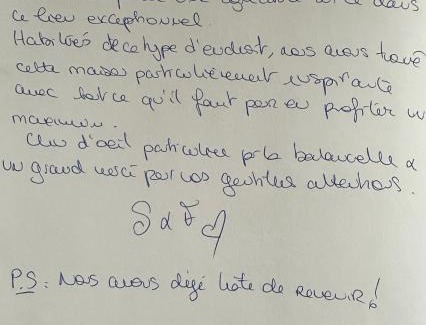 dans
ce lieu exceptionnel.
Habitués de ce type d'endroit, nous avons trouvé
cette maison particulièrement inspirante
avec tout ce qu'il faut pour en profiter un
maximum.
Clin d'oeil particulier pr la balancelle &
un grand merci pour vos gentilles attentions.
S & F
P.S : Nous avons déjà hâte de REVENIR!